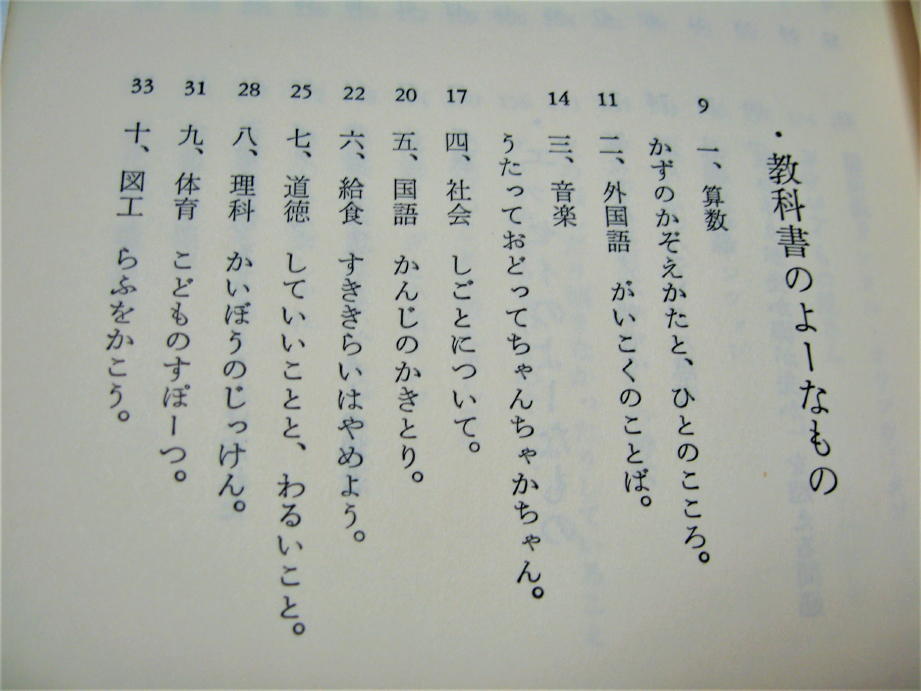 ・教科書のよーなもの
9 一、算数
かずのかぞえかたと、ひとのこころ。
11 二、外国語 がいこくのことば。
14 三、音楽
うたっておどってちゃんちゃかちゃん。
17 四、社会 しごとについて。
20 五、国語 かんじのかきとり。
22 六、給食 すききらいはやめよう。
25 七、道徳 していいことと、わるいこと。
28 八、理科 かいぼうのじっけん。
31 九、体育 こどものすぽーつ。
33 十、図工 らふをかこう。